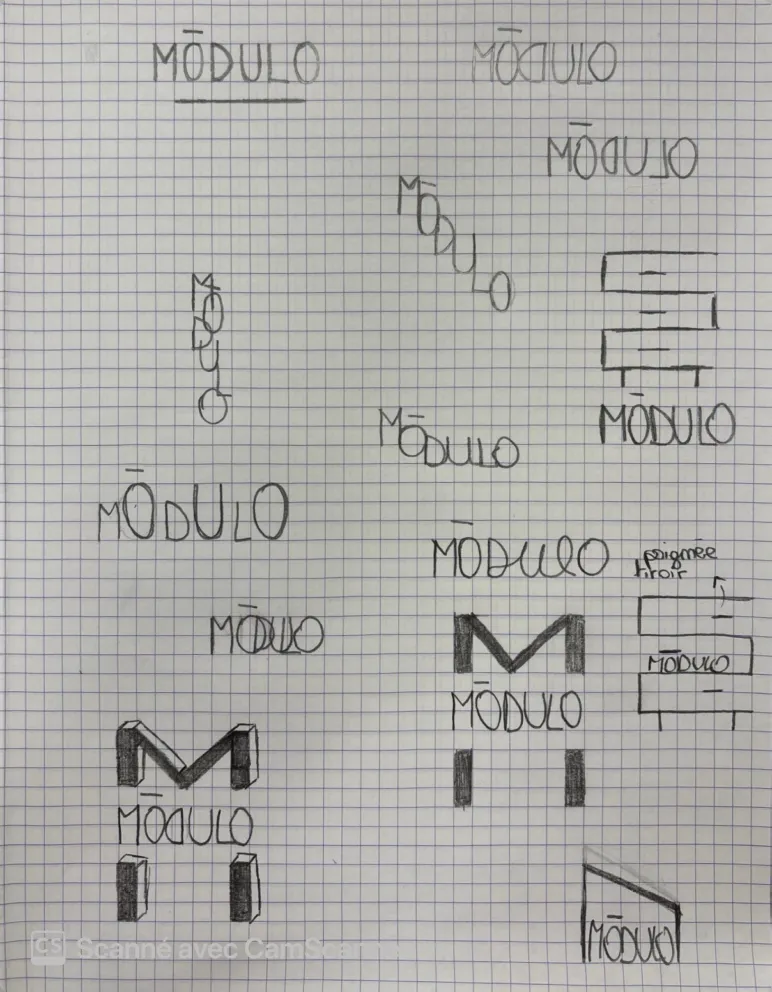 MŌDULO
MŌDULO
MŌDULO
MŌDULO
MODULO
MŌDULO
MŌDULO
MŌDULO
MŌDULO
poignée
tiroir
MŌDULO
MŌDULO
MŌDULO
MŌDULO
MŌDULO
CS Scanné avec CamScanner